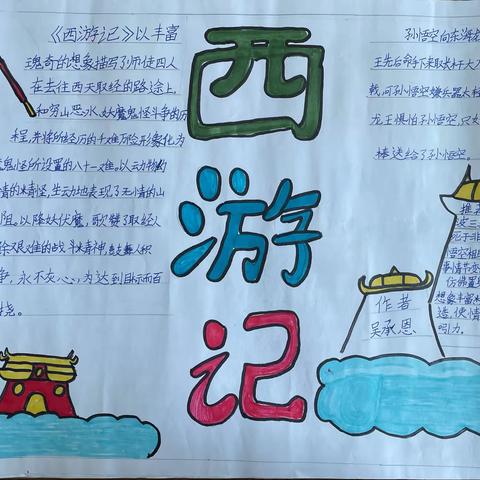 西
游
记
《西游记》以丰富
瑰奇的想象描写了师徒四人
在去往西天取经的路途上
和穷山恶水,妖魔鬼怪斗争的历
程,并将所经历的千难万险形象化为
魔鬼怪所设置的八十一难。以动物的
情的米青怪,生动地表现了无情的山
阻。以降妖伏魔,歌赞了取经人
除艰难的战斗米青神,人积
争,永不灰心,为达到目标而百
挠。
孙悟空向东海
王先后命手下来取长杆大刀
戟,可孙悟空嫌兵器太轻
龙王惧怕孙悟空,只好
棒送给了孙悟空。
推荐
悟空相
事情节变
想象丰富
造,使情
吸引力。
作者
吴承恩